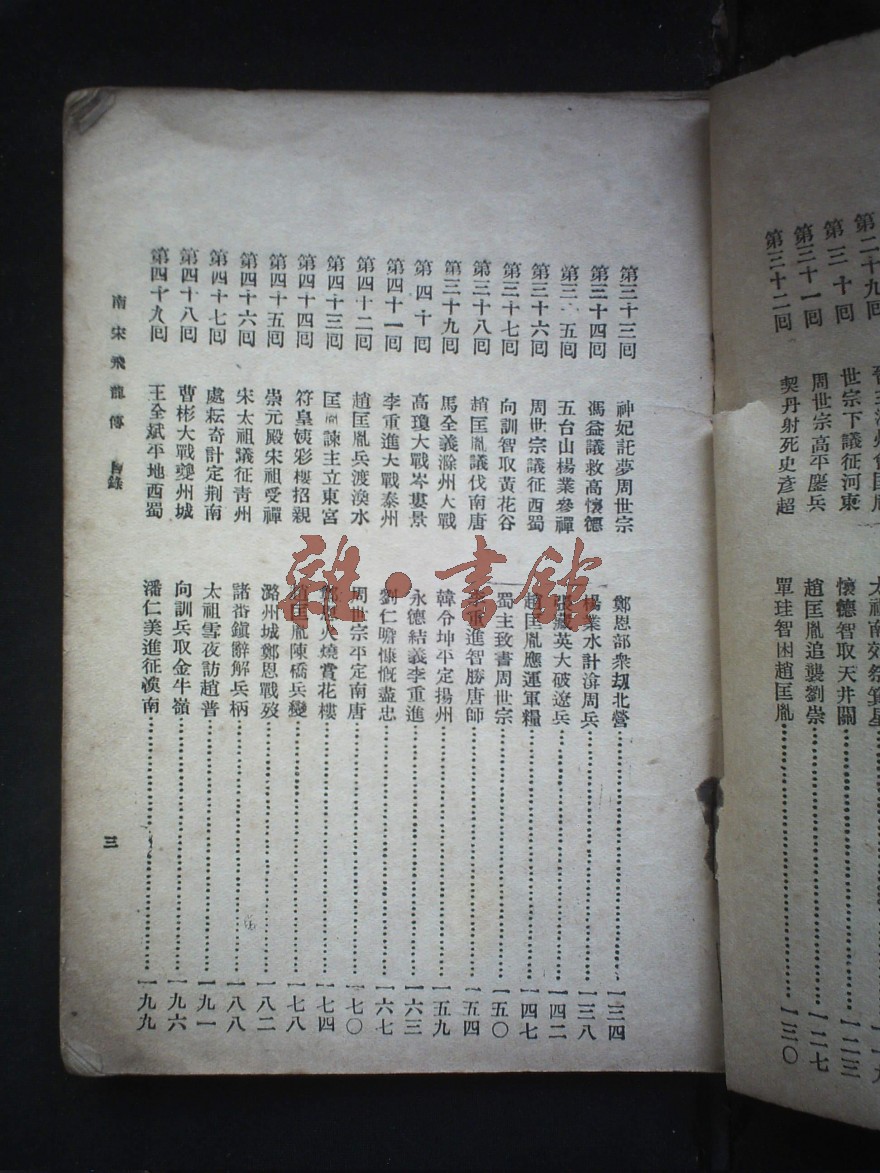 第二十九回
第三十回 世宗下議征河東 懷德智取天井關 一二三
第三十一回 周世宗高平鏖兵 趙匡胤追襲劉崇 一二七
第三十二回 契丹射死史彥超 單珪智困趙匡胤 一三〇
第三十三回 神妃託夢周世宗 鄭恩部衆刼北營 一三四
第三十四回 馮益議救高懷德 楊業水計渰周兵 一三八
第三 五回 五台山楊業參禪 英大破遼兵 一四二
第三十六回 周世宗議征西蜀 趙匡胤應運軍糧 一四七
第三十七回 向訓智取黃花谷 蜀主致書周世宗 一五〇
第三十八回 趙匡胤議伐南唐 李重進智勝唐師 一五四
第三十九回 馬全義滁州大戰 韓令坤平定揚州 一五九
第四十回 高瓊大戰岑婁景 永德結義李重進 一六三
第四十一回 李重進大戰泰州 劉仁瞻慷慨盡忠 一六七
第四十二回 趙匡胤兵渡渙水 周世宗平定南唐 一七〇
第四十三回 匡胤諫主立東宮 火燒賞花樓 一七四
第四十四回 符皇姨彩樓招親 趙匡胤陳橋兵變 一七八
第四十五回 崇元殿宋祖受禪 潞州城鄭恩戰歿 一八二
第四十六回 宋太祖議征青州 諸鎮辭解兵柄 一八八
第四十七回 處耘奇計定荆南 太祖雪夜訪趙普 一九一
第四十八回 曹彬大戰夔州城 向訓兵取金牛嶺 一九六
第四十九回 王全斌平地西蜀 潘仁美進征漢南 一九九
南宋飛龍傳 目錄
三
雜·書館